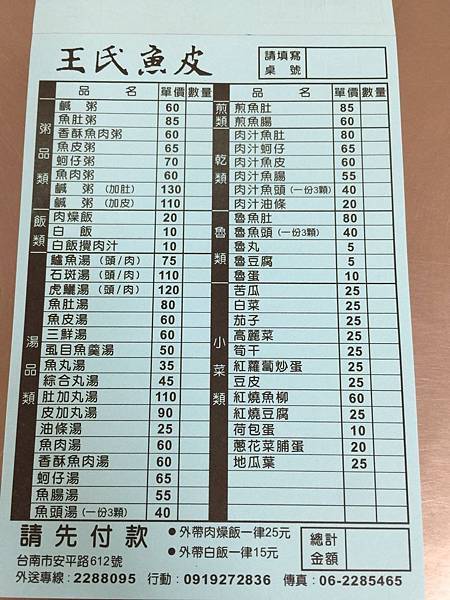 王氏魚皮
請填寫
桌號
品名 單價 數量
粥品類
鹹粥 60
魚肚粥 85
香酥魚肉粥 60
魚皮粥 65
蚵仔粥 70
魚肉粥 60
鹹粥(加肚) 130
鹹粥(加皮) 110
飯類
肉燥飯 20
白飯 10
白飯攪肉汁 10
湯品類
鱸魚湯(頭/肉) 75
石斑湯(頭/肉) 110
虎鱺湯(頭/肉) 120
魚肚湯 80
魚皮湯 60
三鮮湯 60
虱目魚羹湯 50
魚丸湯 35
綜合丸湯 45
肚加丸湯 110
皮加丸湯 90
油條湯 25
魚肉湯 60
香酥魚肉湯 60
蚵仔湯 65
魚腸湯 55
魚頭湯(一份3顆) 40
品名 單價 數量
煎類
煎魚肚 85
煎魚腸 60
乾類
肉汁魚肚 80
肉汁蚵仔 65
肉汁魚皮 60
肉汁魚腸 55
肉汁魚頭(一份3顆) 40
肉汁油條 20
魯類
魯魚肚 80
魯魚頭(一份3顆) 40
魯丸 5
魯豆腐 5
魯蛋 10
小菜類
苦瓜 25
白菜 25
茄子 25
高麗菜 25
筍干 25
紅蘿蔔炒蛋 25
豆皮 25
紅燒魚柳 60
紅燒豆腐 25
荷包蛋 10
蔥花菜脯蛋 20
地瓜葉 25
請先付款
●外帶肉燥飯一律25元
●外帶白飯一律15元
總計
金額
台南市安平路612號
外送專線:2288095 行動:0919272836 傳真:06-2285465